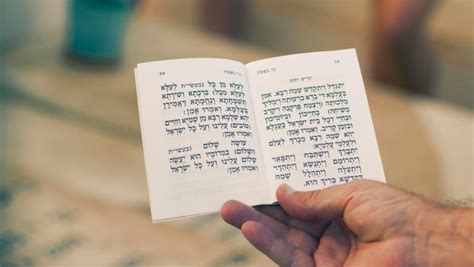 נר נשמה
קדיש יתום
יתגדל ויתקדש שמה רבא. אמן
בעלמא די ברא כרעותה וימליך
מלכותה ויצמח פרקנה ויקרב
משיחה. אמן. בחייכון וביומיכון
ובחיי דכל בית ישראל
ואמרו אמן:
יתברך וישתבח ויתפאר
ויתרומם ויתנשא ויתהדר
ויתעלה ויתהלל שמה
דקדשא בריך הוא.
נר נשמה
לעלא (בעשי״ת לעלא
מכל ברכתא ושירתא
תשבחתא ונחמתא דאמירן
בעלמא ואמרו אמן:
יהא שלמא רבא מן שמיא וחיים
(טובים) עלינו ועל כל ישראל
ואמרו אמן:
עושה שלום (בעשי״ת
השלום) במרומיו הוא יעשה
שלום עלינו ועל כל ישראל
ואמרו אמן: